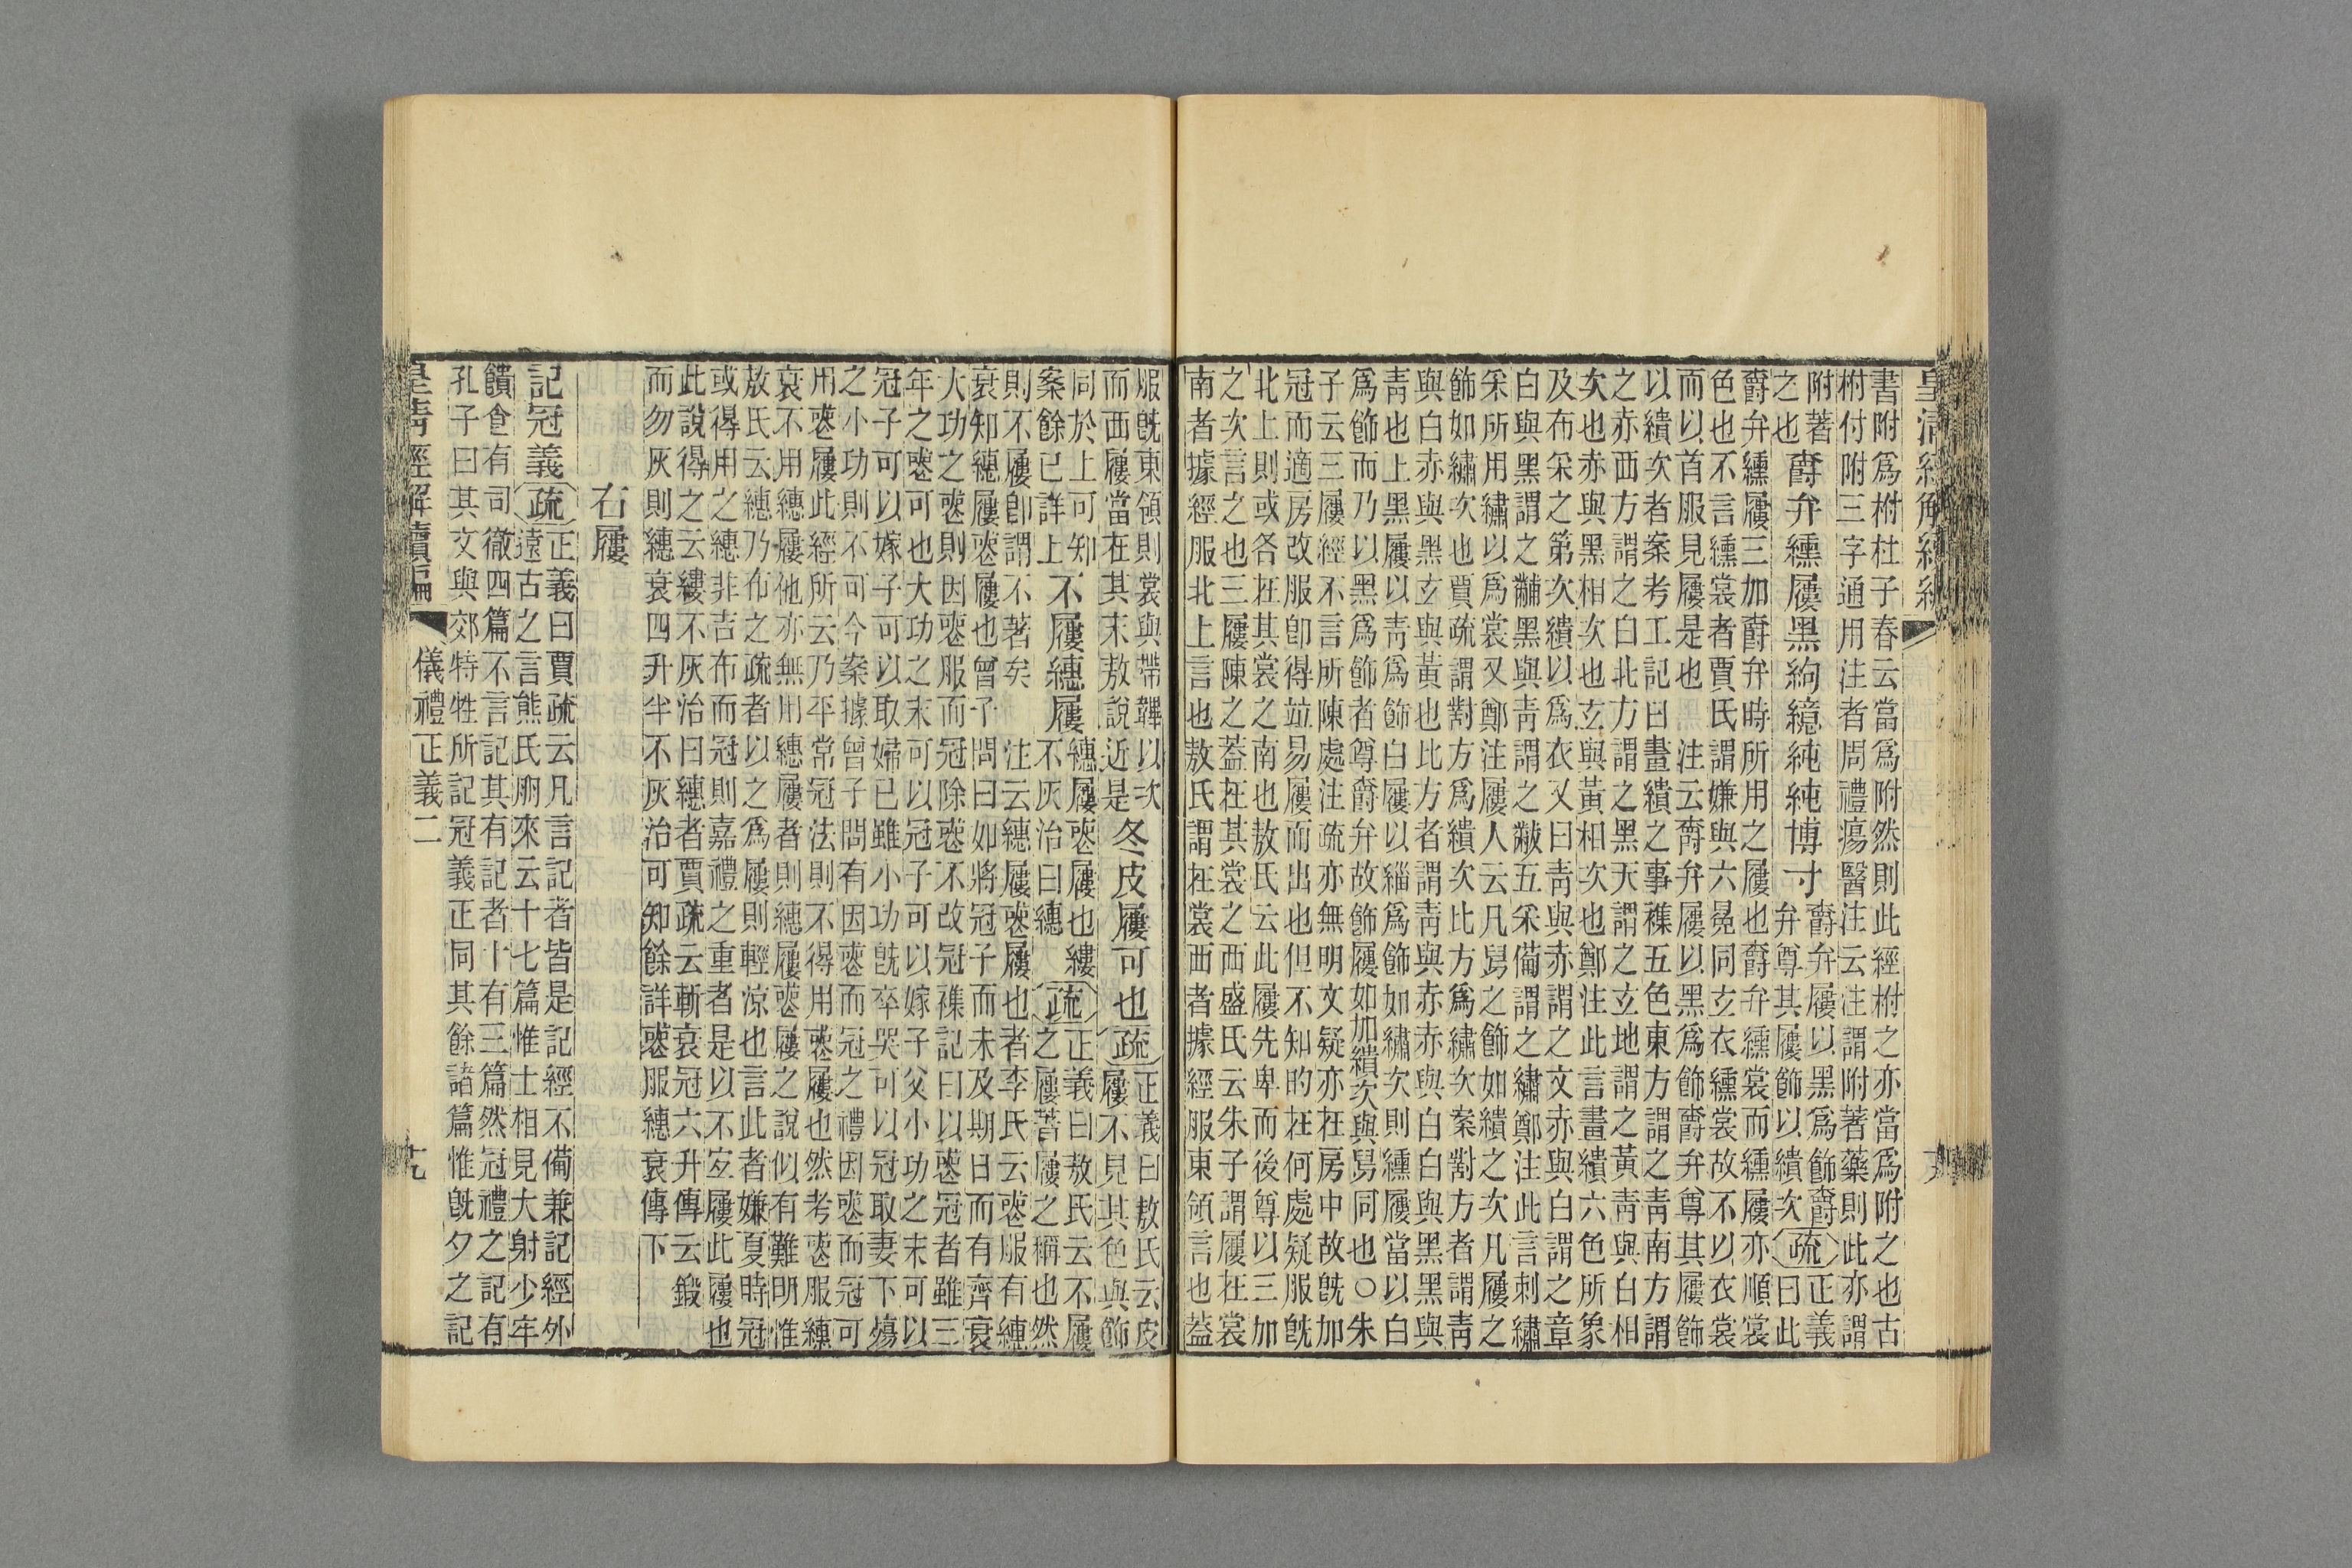 皇清經解續編
書附爲柎杜子春云當爲附然則此經柎之亦當爲附之也古
柎付附三字通用注者周禮瘍醫注云注謂附著藥則此亦謂
附著
之也
爵弁纁屨黑絇繶純純博寸
爵弁屨以黑爲飾爵
弁尊其屨飾以繢次
疏
正義
曰此
爵弁纁屨三加爵弁時所用之屨也爵弁纁裳而纁屨亦順裳
色也不言纁裳者賈氏謂嫌與六冕同玄衣纁裳故不以衣裳
而以首服見屨是也　注云爵弁屨以黑爲飾爵弁尊其屨飾
以繢次者案考工記曰畫繢之事襍五色東方謂之青南方謂
之赤西方謂之白北方謂之黑天謂之玄地謂之黃青與白相
次也赤與黑相次也玄與黃相次也鄭注此言畫繢六色所象
及布采之第次繢以爲衣又曰青與赤謂之文赤與白謂之章
白與黑謂之黼黑與青謂之黻五采備謂之繡鄭注此言刺繡
采所用繡以爲裳又鄭注屨人云凡舄之飾如繢之次凡屨之
飾如繡次也賈疏謂對方爲繢次比方爲繡次案對方者謂青
與白赤與黑玄與黃也比方者謂青與赤赤與白白與黑黑與
青也上黑屨以青爲飾白屨以緇爲飾如繡次則纁屨當以白
爲飾而乃以黑爲飾者尊爵弁故飾屨如加繢次與舄同也○朱
子云三屨經不言所陳處注疏亦無明文疑亦在房中故旣加
冠而適房改服卽得竝易屨而出也但不知的在何處疑服旣
北上則或各在其裳之南也敖氏云此屨先卑而後尊以三加
之次言之也三屨陳之葢在其裳之西盛氏云朱子謂屨在裳
南者據經服北上言也敖氏謂在裳西者據經服東領言也葢
服旣東領則裳與帶韠以次
而西屨當在其末敖說近是
冬皮屨可也
疏
正義曰敖氏云皮
屨不見其色與飾
同於上可知
案餘已詳上
不屨繐屨
繐屨喪屨也縷
不灰治曰繐
疏
正義曰敖氏云不屨
之屨著屨之稱也然
則不屨卽謂不著矣　注云繐屨喪屨也者李氏云喪服有繐
衰知繐屨喪屨也曾子問曰如將冠子而未及期日而有齊衰
大功之喪則因喪服而冠除喪不改冠襍記曰以喪冠者雖三
年之喪可也大功之末可以冠子可以嫁子父小功之末可以
冠子可以嫁子可以取婦已雖小功旣卒哭可以冠取妻下殤
之小功則不可今案據曾子問有因喪而冠之禮因喪而冠可
用喪屨此經所云乃平常冠法則不得用喪屨也然考喪服繐
衰不用繐屨他亦無用繐屨者則繐屨喪屨之說似有難明惟
敖氏云繐乃布之疏者以之爲屨則輕涼也言此者嫌夏時冠
或得用之繐非吉布而冠則嘉禮之重者是以不宜屨此屨也
此說得之云縷不灰治曰繐者賈疏云斬衰冠六升傳云鍛
而勿灰則繐衰四升半不灰治可知餘詳喪服繐衰傳下
右屨
記冠義
疏
正義曰賈疏云凡言記者皆是記經不備兼記經外
遠古之言熊氏朋來云十七篇惟士相見大射少牢
饋食有司徹四篇不言記其有記者十有三篇然冠禮之記有
孔子曰其文與郊特牲所記冠義正同其餘諸篇惟旣夕之記
皇清經解續編
儀禮正義二
十九